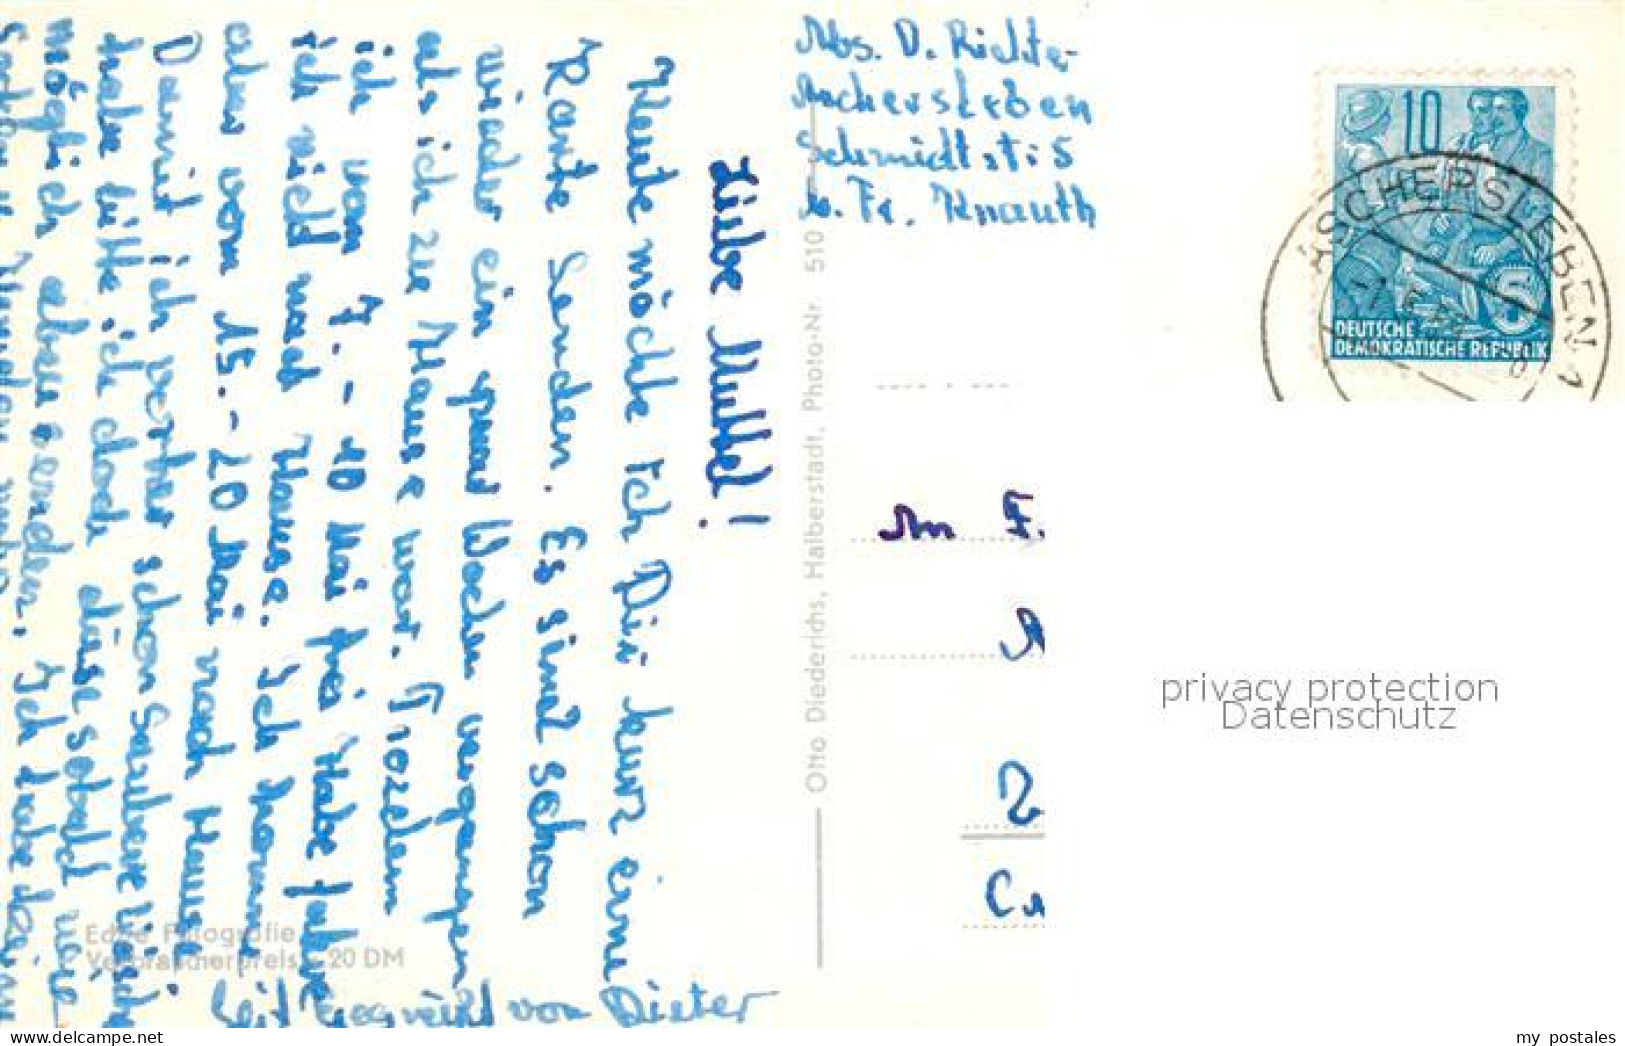 Liebe Muttel!
Heute möchte ich Dir kurz eine
Karte senden. Es sind schon
wieder ein paar Wochen vergangen
als ich zu Hause war. Trozdem
ich vom 7. - 10 Mai frei habe fahre
ich nicht nach Hause. Ich komme
aber vom 15. - 20 Mai nach Hause.
Damit ich vorher schon
habe bitte ich doch diese sobald wie
möglich abzusenden. Ich habe
Seit gegrüßt von Dieter
Abs. D. Richter
Aschersleben
Schmidtstr 5
b. Fr. Knauth
10
DEUTSCHE
DEMOKRATISCHE REPUBLIK
5
ASCHERSLEBEN 1
An F.
Otto Diederichs, Halberstadt, Photo-Nr. 510
Echte Fotografie
Verbraucherpreis -.20 DM
privacy protection
Datenschutz
my postales